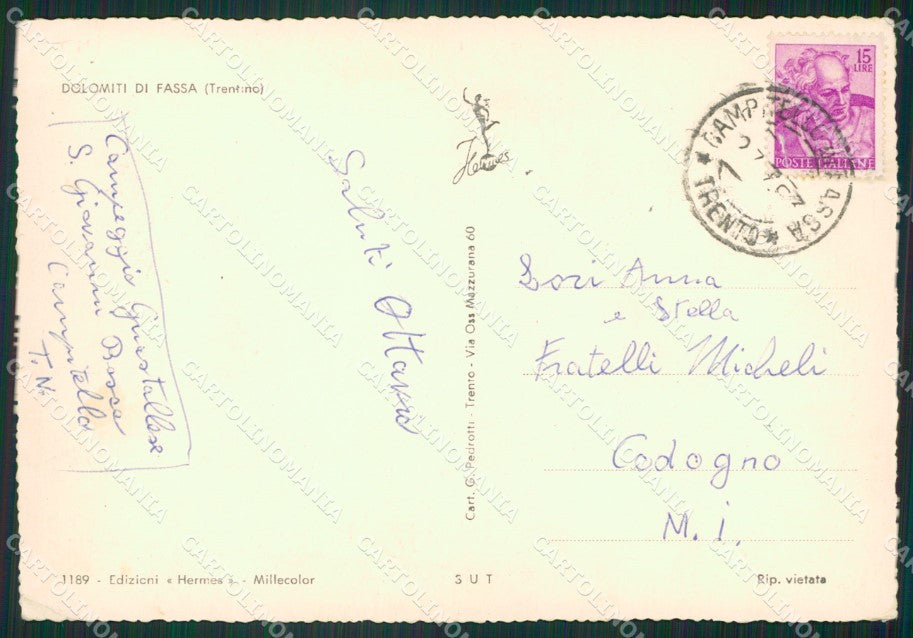 DOLOMITI DI FASSA (Trentino)
Campeggio Guastallese
S. Giovanni Bosco
Campitello
T.N.
Saluti Ottavio
Hermes
Cart. G. Pedrotti - Trento - Via Oss Mazzurana 60
15
LIRE
POSTE ITALIANE
* CAMPITELLO FASSA * TRENTO
Anna
e Stella
Fratelli Micheli
Codogno
M.I.
1189 - Edizioni « Hermes » - Millecolor
S U T
Rip. vietata
CARTOLINOMANIA